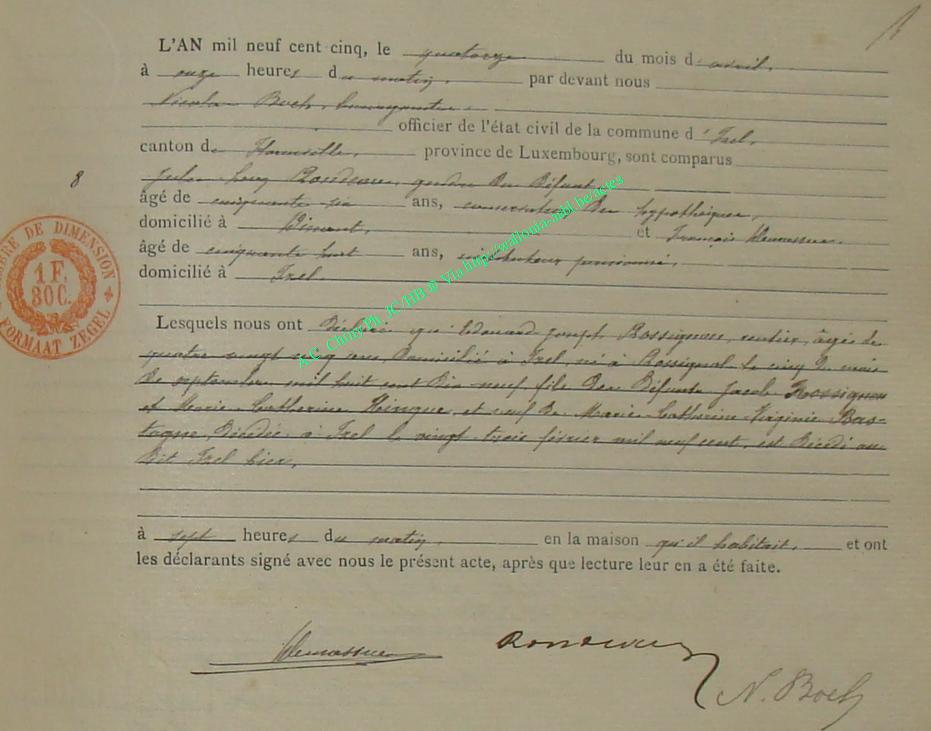 L'AN mil neuf cent cinq, le quatorze du mois d'avril,
à onze heures du matin, par devant nous
Nicolas Boch, bourgmestre
officier de l'état civil de la commune d'Izel,
canton de Florenville, province de Luxembourg, sont comparus
8
Jules Rondeaux, gendre du défunt,
âgé de cinquante six ans, conservateur des hypothèques,
domicilié à Dinant, et François
âgé de cinquante huit ans, instituteur pensionné,
domicilié à Izel
Lesquels nous ont déclaré que Edouard Joseph Rossignon, rentier, âgé de
quatre vingt cinq ans, domicilié à Izel, né à Rossignol le cinq du mois
de septembre mil huit cent dix neuf fils des défunts Jacob Rossignon
et Marie Catherine et veuf de Marie-Catherine-Virginie Bas-
togne, décédée à Izel le vingt trois février mil neuf cent, est décédé au
dit Izel hier,
à sept heures du matin, en la maison qu'il habitait, et ont
les déclarants signé avec nous le présent acte, après que lecture leur en a été faite.
N. Boch
TIMBRE DE DIMENSION
1 F.
80 C.
FORMAAT ZEGEL
A.C. Chiny Ph. JC-HB © Via http://wallonia-asbl.be/actes